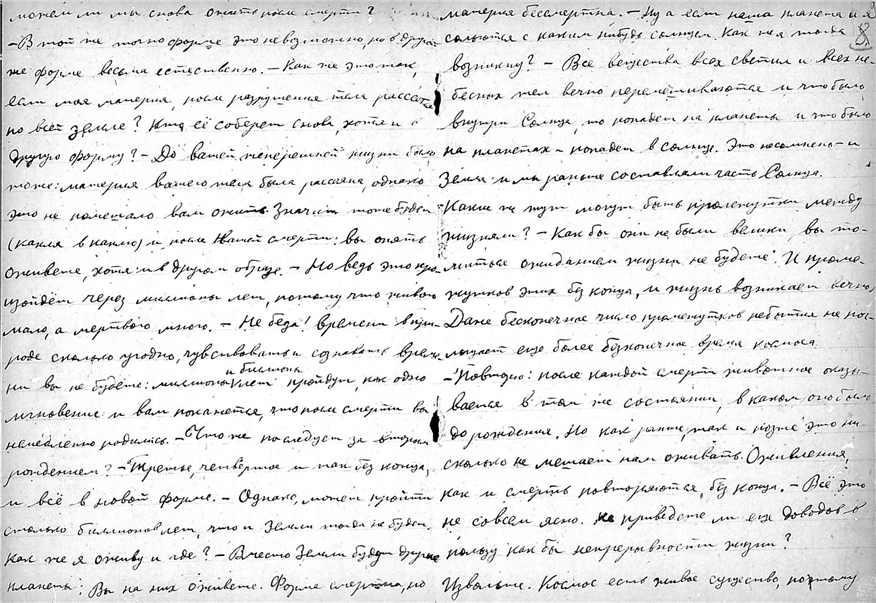 можем ли мы снова ожить после смерти?
- В той же точно форме это невозможно, но в другой
же форме весьма естественно. - Как же это так,
если моя материя, после разрушения тела рассеется
по всей земле? Кто её соберет снова, хотя и в
другую форму? - До вашей теперешней жизни было
тоже: материя вашего тела была рассеяна, однако
это не помешало вам ожить. Значит тоже будет
(капля в каплю) и после Вашей смерти: вы опять
оживете, хотя и в другом образе. - Но ведь это про-
изойдёт через миллионы лет, потому что живого
мало, а мертвого много. - Не беда! Времени в при-
роде сколько угодно, чувствовать и сознавать време-
ни вы не будете: миллионы и биллионы лет пройдут, как одно
мгновение и вам покажется, что после смерти вы
немедленно родились. - Что же последует за вторым
рождением? - Третье, четвертое и так без конца,
и всё в новой форме. - Однако, может пройти
столько биллионов лет, что и Земли тогда не будет,
Как же я оживу и где? - Вместо Земли будут другие
планеты; Вы на них оживете. Форма смертна, но
материя бессмертна. - Ну а если наша планета и я
сольются с каким нибудь солнцем. Как же я тогда
8.
возникну? - Все вещества всех светил и всех не-
бесных тел вечно перемешиваются и что было
внутри Солнца, то попадет на планеты и что было
на планетах - попадет в солнце. Это несомненно - и
Земля и мы раньше составляли часть Солнца.
Какие же тут могут быть промежутки между
жизнями? - Как бы они не были велики, вы то-
миться ожиданием жизни не будете. И проме-
жутков этих без конца, и жизнь возникает вечно,
Даже бесконечное число промежутков небытия не пог-
лощает еще более бесконечное время космоса.
- Повторю: после каждой смерти животное оказы-
вается в том же состоянии, в каком оно было
до рождения. Но как ранше, так и позже это ни-
сколько не мешает нам оживать. Оживления,
как и смерть повторяются, без конца. - Всё это
не совсем ясно. Не приведете ли еще доводов в
пользу как бы непрерывности жизни?
Извольте. Космос есть живое существо, потому